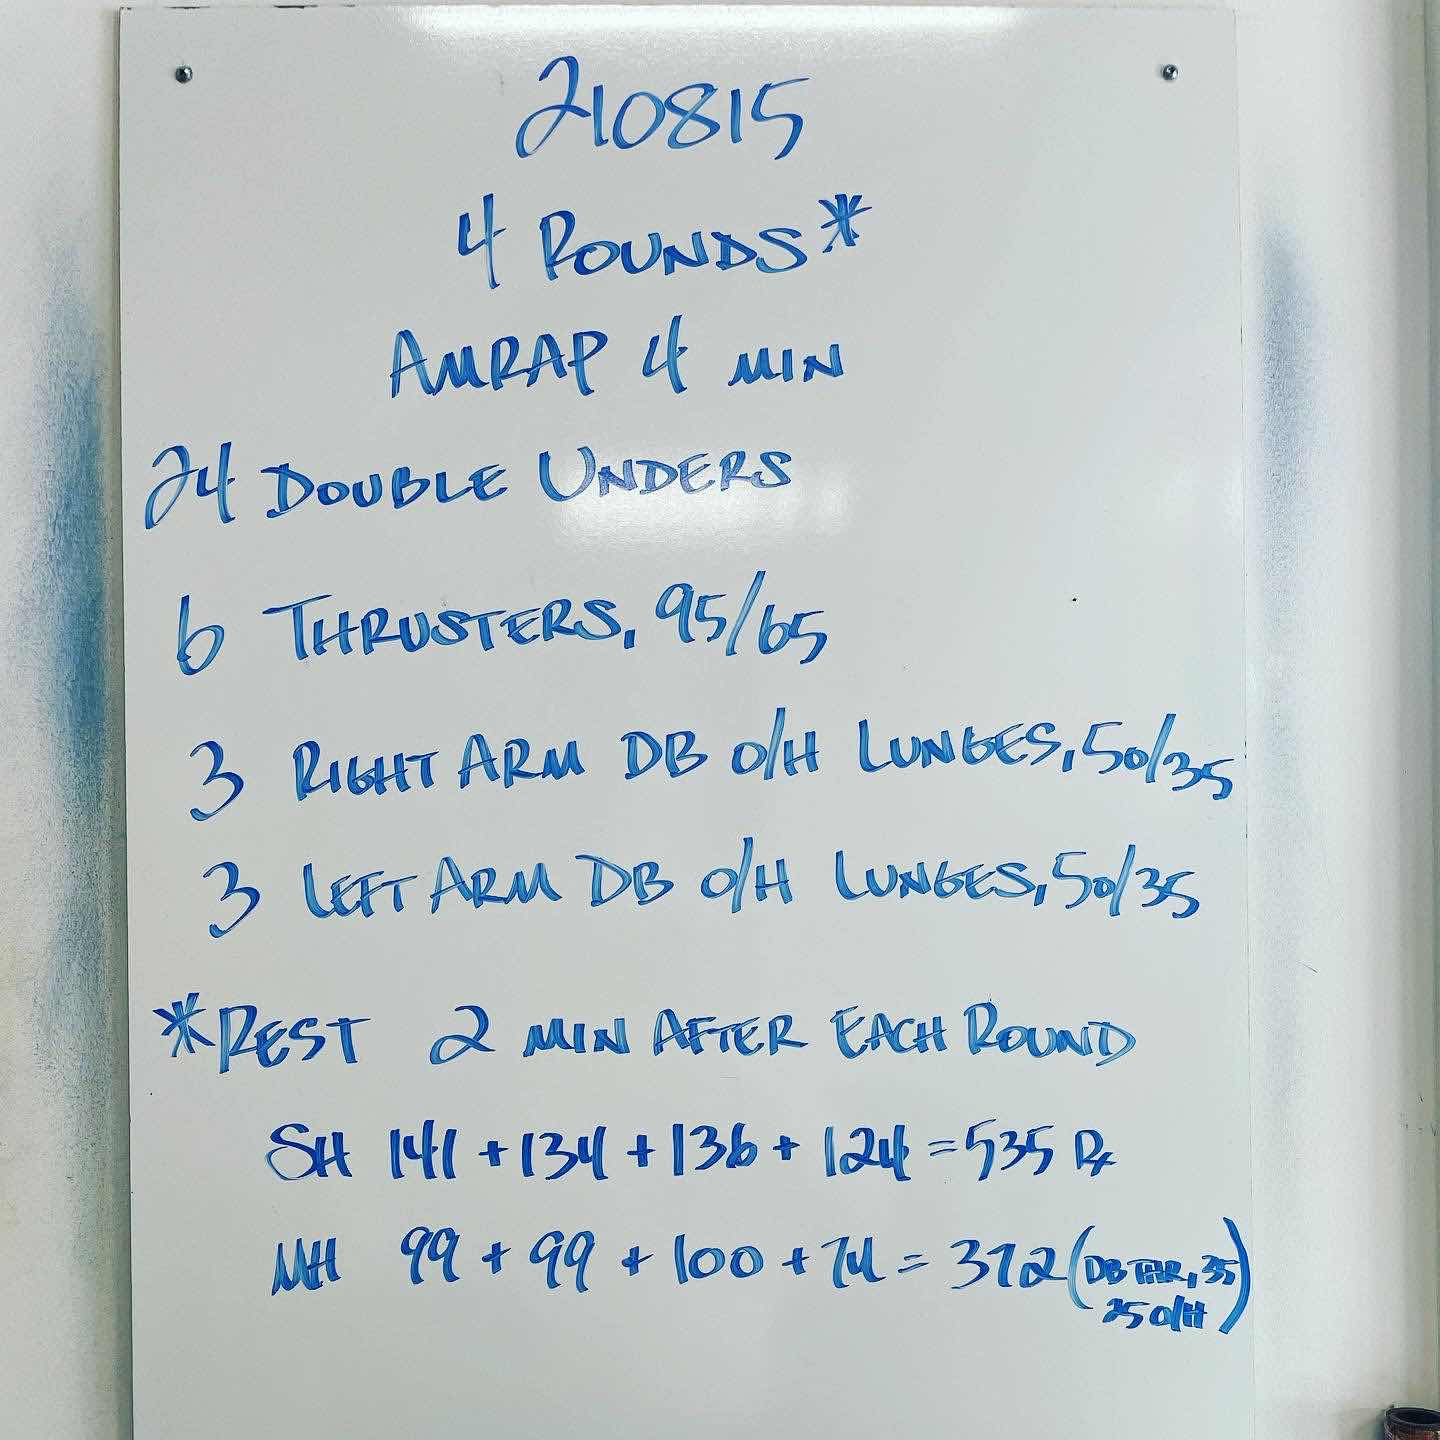 210815
4 ROUNDS*
AMRAP 4 MIN
24 DOUBLE UNDERS
6 THRUSTERS, 95/65
3 RIGHT ARM DB O/H LUNGES, 50/35
3 LEFT ARM DB O/H LUNGES, 50/35
*REST 2 MIN AFTER EACH ROUND
SH 141 + 134 + 136 + 124 = 535 Rx
MH 99 + 99 + 100 + 74 = 372 (DB THR, 35
25 O/H)